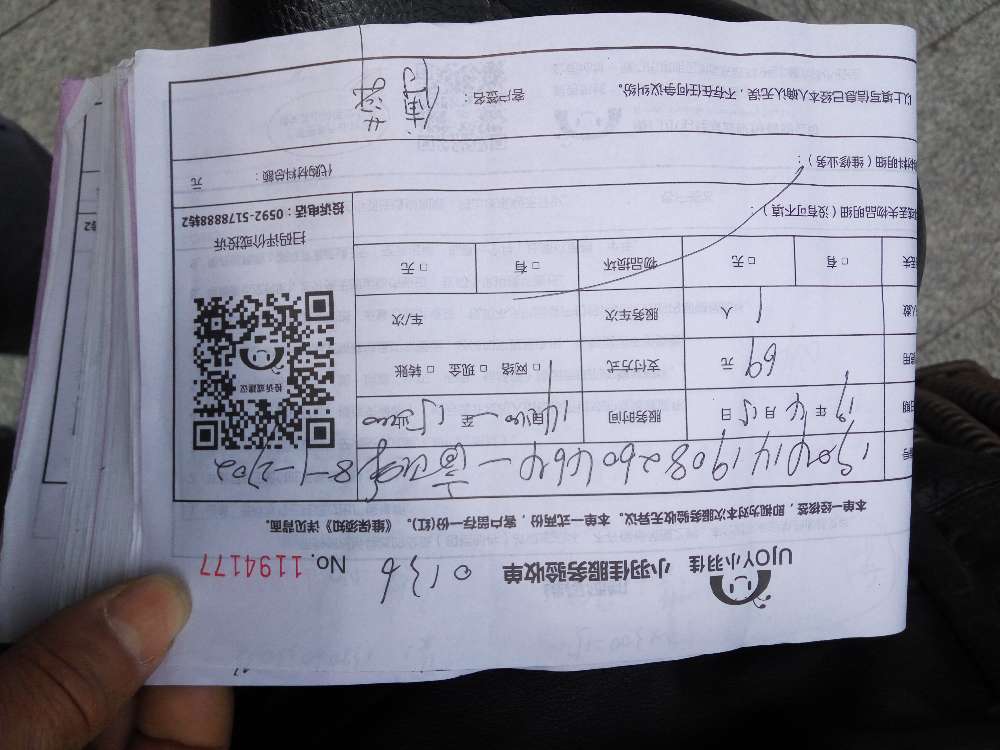 UJOY小羽佳 小羽佳服务验收单 0136 No. 1194177
本单一经核签，即视为对本次服务验收无异议。本单一式两份，客户留存一份(红)。《维保须知》详见背面。
19 年 4 月 15 日 服务时间 至
69 元 支付方式 □ 网络 □ 现金 □ 转账
1 人 服务车次 车/次
□ 有 □ 无 物品损坏 □ 有 □ 无
投诉或建议
扫码评价或投诉
投诉电话：0592-5178888转2
丢失物品明细（没有可不填）：
材料明细（维修业务）：
代购材料总额： 元
以上填写信息已经本人确认无误，不存在任何争议纠纷。 客户签名：